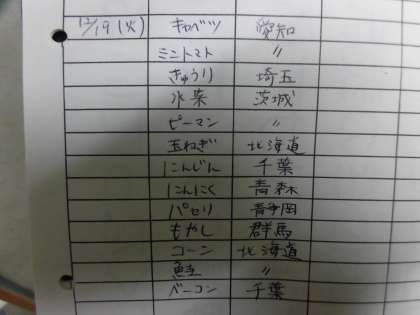 12/19(火) キャベツ 愛知
ミニトマト 〃
きゅうり 埼玉
水菜 茨城
ピーマン 〃
玉ねぎ 北海道
にんじん 千葉
にんにく 青森
パセリ 静岡
もやし 群馬
コーン 北海道
鮭 〃
ベーコン 千葉